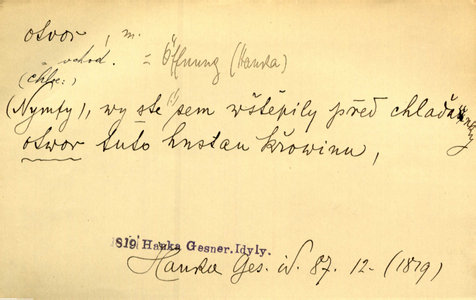 otvor, m.
vchod. = Öffnung (Hanka)
(Nymfy), wy ste sem wštěpily před chladný
otwor tuto hustau křowinu,
819 Hanka Gesner. Idyly.
Hanka Ges. id. 87. 12. (1819)